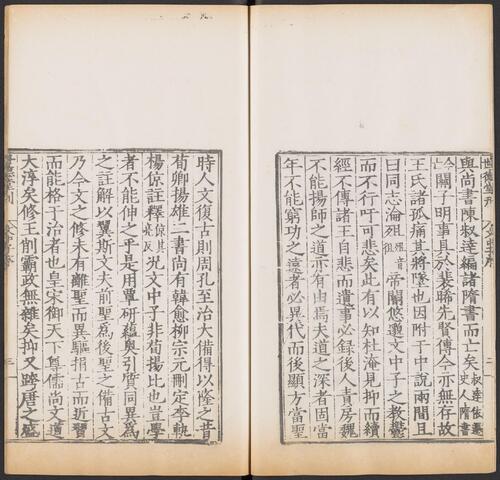 世德堂刊
與尚書陳叔達編諸隋書而亡矣叔達依遷史人隋書
今亡關子明事具於裴晞先賢傳今亦無存故
王氏諸孤痛其將墜也因附于中說兩間且
曰同志淪殂殂音徂帝閽悠邈文中子之教鬱
而不行吁可悲矣此有以知杜淹見抑而續
經不傳諸王自悲而遺事必錄後人責房魏
不能揚師之道亦有由焉夫道之深者固當
年不能窮功之遠者必異代而後顯方當聖
時人文復古則周孔至治大備得以隆之昔
荀卿揚雄二書尚有韓愈柳宗元刪定李軌
楊倞註釋倞其亮反况文中子非荀揚比也豈學
者不能伸之乎是用覃研蘊奧引質同異為
之註解以翼斯文夫前聖為後聖之備古文
乃今文之修未有離聖而異驅捐古而近習
而能格于治者也皇宋御天下尊儒尚文道
大淳矣修王削霸政無雜矣抑又跨唐之盛